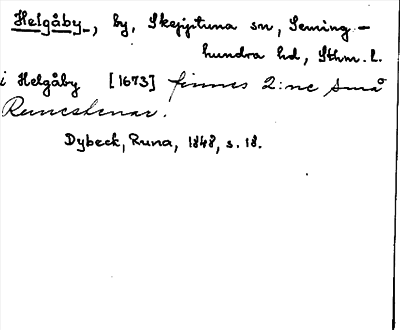 Helgåby, by, Skepptuna sn, Seming-
hundra hd, Sthm. l.
i Helgåby [1673] finnes 2:ne små
Runestenar.
Dybeck, Runa, 1848, s. 18.